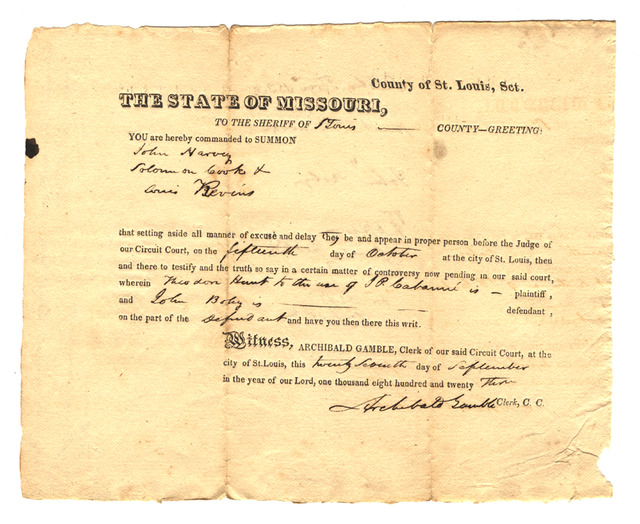 County of St. Louis, Sct.
THE STATE OF MISSOURI,
TO THE SHERIFF OF St Louis COUNTY—GREETING:
YOU are hereby commanded to SUMMON
John Harvey
Solomon Cooke &
Louis Bevins
that setting aside all manner of excuse and delay they be and appear in proper person before the Judge of
our Circuit Court, on the fifteenth day of October at the city of St. Louis, then
and there to testify and the truth so say in a certain matter of controversy now pending in our said court,
wherein Theodore Hunt to the use of J P Cabanné is — plaintiff,
and John is defendant,
on the part of the Defendant and have you then there this writ.
Witness, ARCHIBALD GAMBLE, Clerk of our said Circuit Court, at the
city of St.Louis, this twenty seventh day of September
in the year of our Lord, one thousand eight hundred and twenty
Archibald Gamble Clerk, C. C.